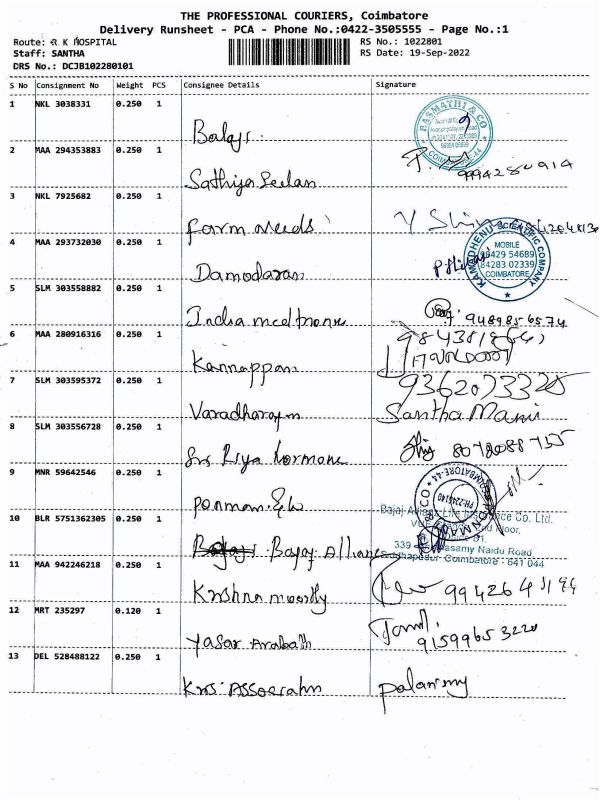 THE PROFESSIONAL COURIERS, Coimbatore
Delivery Runsheet - PCA - Phone No.:0422-3505555 - Page No.:1
Route: R K HOSPITAL
RS No.: 1022801
Staff: SANTHA
RS Date: 19-Sep-2022
DRS No.: DCJB102280101
S No Consignment No Weight PCS Consignee Details Signature
1 NKL 3038331 0.250 1 Balaji
2 MAA 294353883 0.250 1 Sathiya Seelan 9994280914
3 NKL 7925682 0.250 1 Farm Needs
KAMADHENU SCIENTIFIC COMPANY
MOBILE
98429 54689
84283 02339
COIMBATORE
4 MAA 293732030 0.250 1 Damodaran
5 SLM 303558882 0.250 1 India medtronic 9489856574
6 MAA 280916316 0.250 1 Kannappan
7 SLM 303595372 0.250 1 Varadharajan Santha Mani
8 SLM 303556728 0.250 1 Sri Riya Hormone 8072088755
9 MNR 59642546 0.250 1 Ponmani & Co
10 BLR 5751362305 0.250 1 Bajaj Alliance
Bajaj Allianz Life Insurance Co. Ltd.
Naidu Road
Coimbatore - 641 044
11 MAA 942246218 0.250 1 Krishna moorthy
12 MRT 235297 0.120 1 Yasar Arabath 9159965322
13 DEL 528488122 0.250 1 Palanisamy